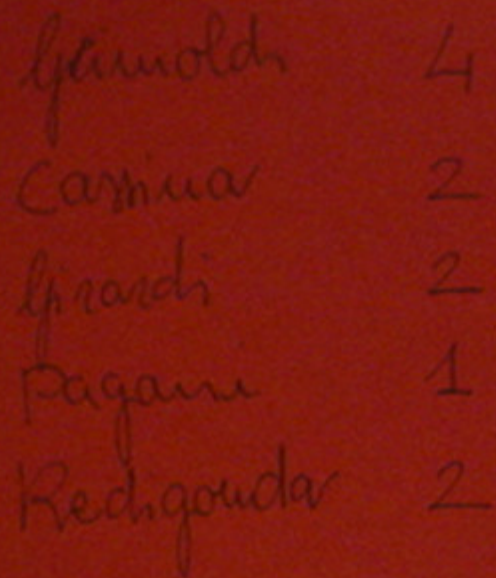 Grimoldi 4
Cassina 2
Girardi 2
Pagani 1
Redigonda 2